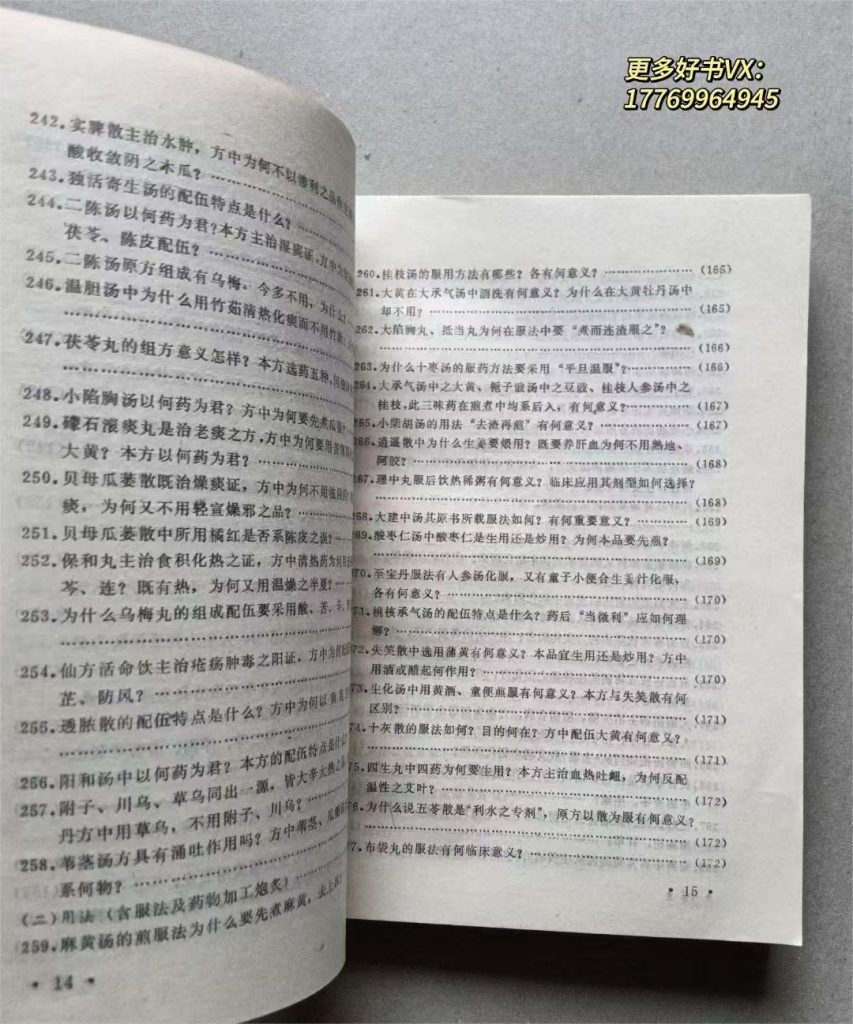 更多好书VX：
17769964945
242.实脾散主治水肿，方中为何不以渗利之品
酸收敛阴之木瓜？
243.独活寄生汤的配伍特点是什么？
244.二陈汤以何药为君？本方主治湿痰证，方中为何
茯苓、陈皮配伍？
245.二陈汤原方组成有乌梅。今多不用，为什么？
246.温胆汤中为什么用竹茹清热化痰而不用竹
247.茯苓丸的组方意义怎样？本方选药五种，何
248.小陷胸汤以何药为君？方中为何要先煮瓜蒌？
249.礞石滚痰丸是治老痰之方，方中为何要用
大黄？本方以何药为君？
250.贝母瓜蒌散既治燥痰证，方中为何不用滋润
痰，为何又不用轻宣燥邪之品？
251.贝母瓜蒌散中所用橘红是否系陈皮之误？
252.保和丸主治食积化热之证，方中清热药为何
芩、连？既有热，为何又用温燥之半夏？
253.为什么乌梅丸的组成配伍要采用酸、苦、辛、
254.仙方活命饮主治疮疡肿毒之阳证，方中为何
芷、防风？
255.透脓散的配伍特点是什么？方中为何以黄芪
256.阳和汤中以何药为君？本方的配伍特点是什么？
257.附子、川乌、草乌同出一源，皆大辛大热之
丹方中用草乌，不用附子、川乌？
258.苇茎汤方具有涌吐作用吗？方中苇茎、瓜瓣
系何物？
（二）用法（含服法及药物加工炮炙）
259.麻黄汤的煎服法为什么要先煮麻黄，去上沫？
• 14 •
260.桂枝汤的服用方法有哪些？各有何意义？ ………………（165）
261.大黄在大承气汤中酒洗有何意义？为什么在大黄牡丹汤中
却不用？ ………………（165）
262.大陷胸丸、抵当丸为何在服法中要“煮而连渣服之”？
………………（166）
263.为什么十枣汤的服药方法要采用“平旦温服”？ ………（166）
264.大承气汤中之大黄、栀子豉汤中之豆豉、桂枝人参汤中之
桂枝，此三味药在煎煮中均系后入，有何意义？ ………（167）
265.小柴胡汤的用法“去渣再煎”有何意义？ ………………（167）
66.逍遥散中为什么生姜要煨用？既要养肝血为何不用熟地、
阿胶？ ………………（168）
67.理中丸服后饮热稀粥有何意义？临床应用其剂型如何选择？
………………（168）
68.大建中汤其原书所载服法如何？有何重要意义？ ………（169）
69.酸枣仁汤中酸枣仁是生用还是炒用？为何本品要先煎？
………………（169）
70.至宝丹服法有人参汤化服，又有童子小便合生姜汁化服，
各有何意义？ ………………（170）
71.桃核承气汤的配伍特点是什么？药后“当微利”应如何理
解？ ………………（170）
72.失笑散中选用蒲黄有何意义？本品宜生用还是炒用？方中
用酒或醋起何作用？ ………………（170）
73.生化汤中用黄酒、童便煎服有何意义？本方与失笑散有何
区别？ ………………（171）
74.十灰散的服法如何？目的何在？方中配伍大黄有何意义？
………………（171）
75.四生丸中四药为何要生用？本方主治血热吐衄，为何反配
温性之艾叶？ ………………（172）
6.为什么说五苓散是“利水之专剂”，原方以散为服有何意义？
………………（172）
7.布袋丸的服法有何临床意义？ ………………（172）
• 15 •